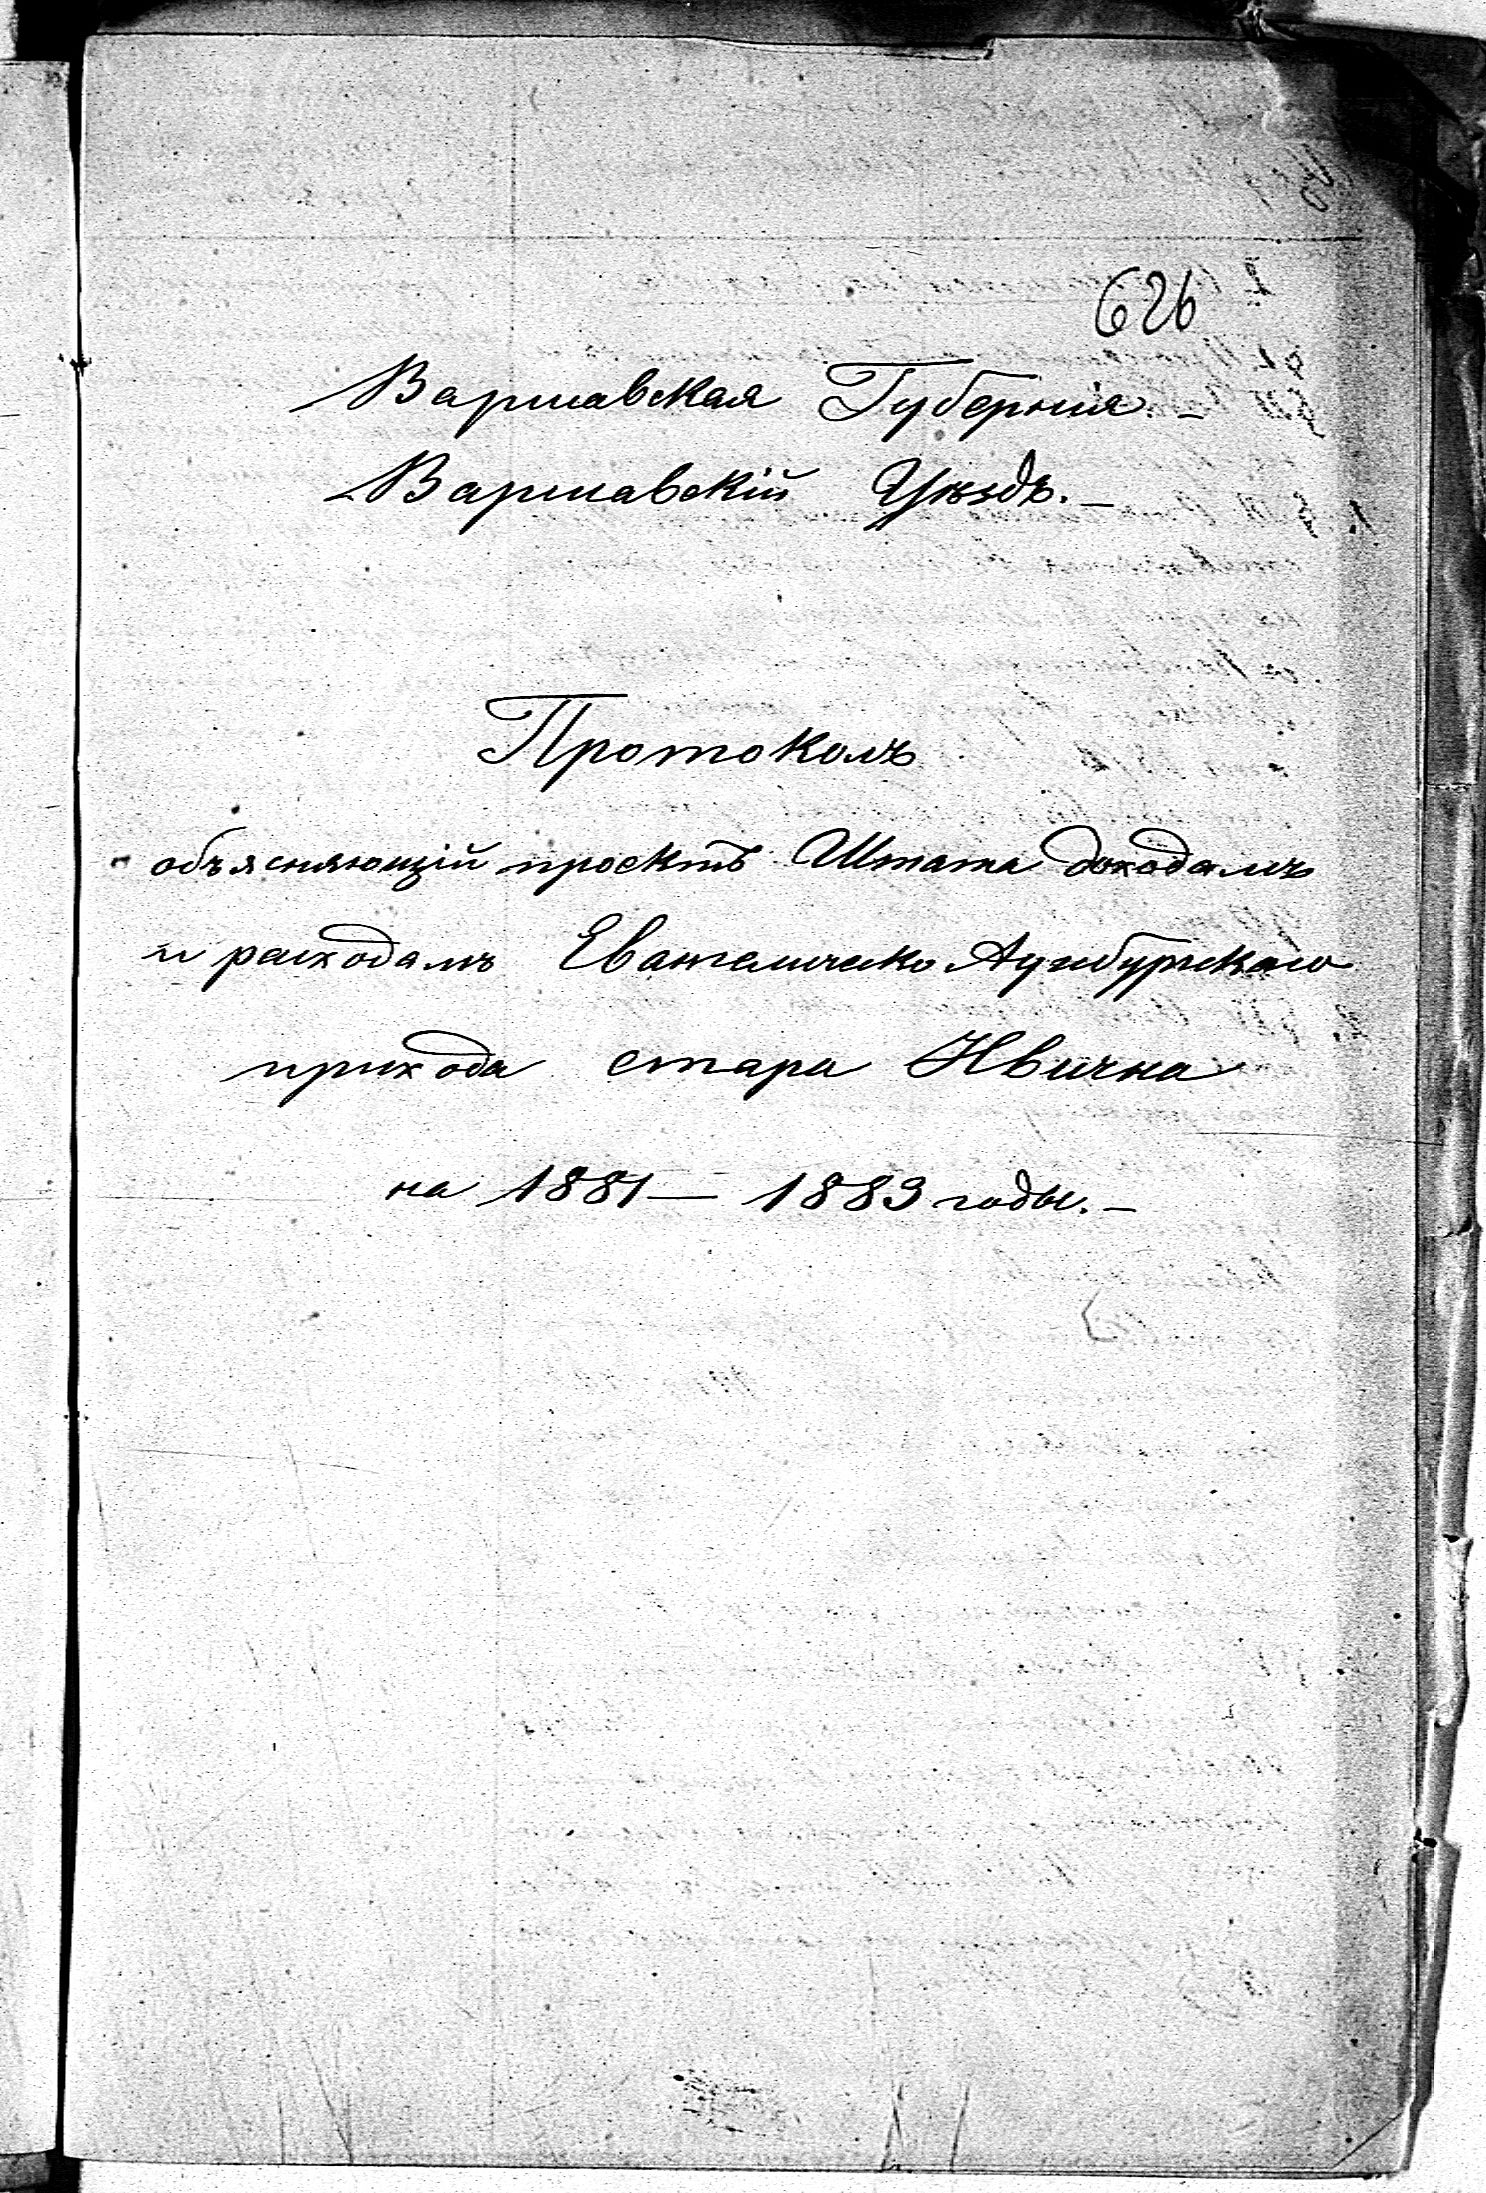 626
Варшавская Губернія. –
Варшавскій Уѣздъ. –
Протоколъ
объясняющій проектъ Штата доходамъ
и расходамъ Евангелическо Аугсбургскаго
прихода стара Ивична
на 1881 — 1883 годы. –